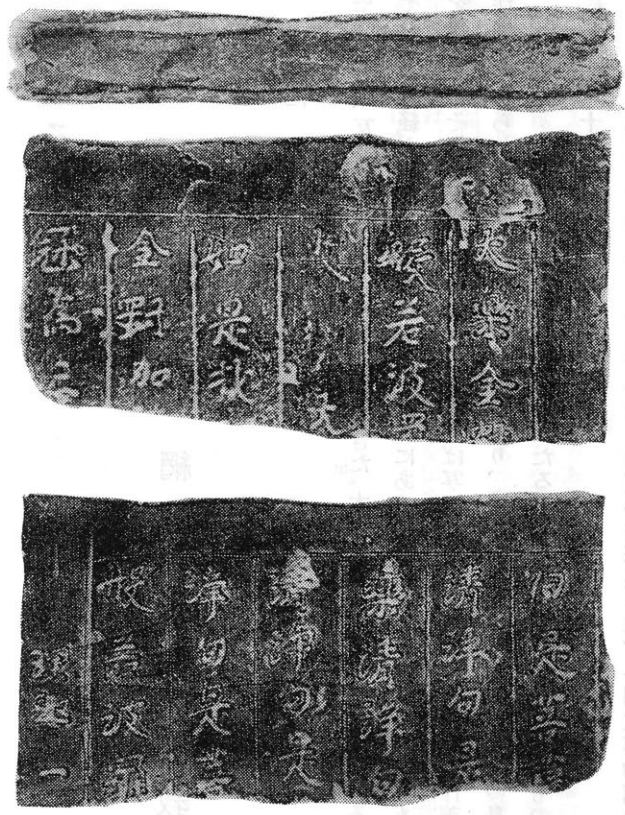 大樂金剛
般若波羅
大
如是我
金剛加
冠為三
句是菩薩
清淨句是
樂清淨句
淨句是
淨句是菩
般若波羅
理趣一